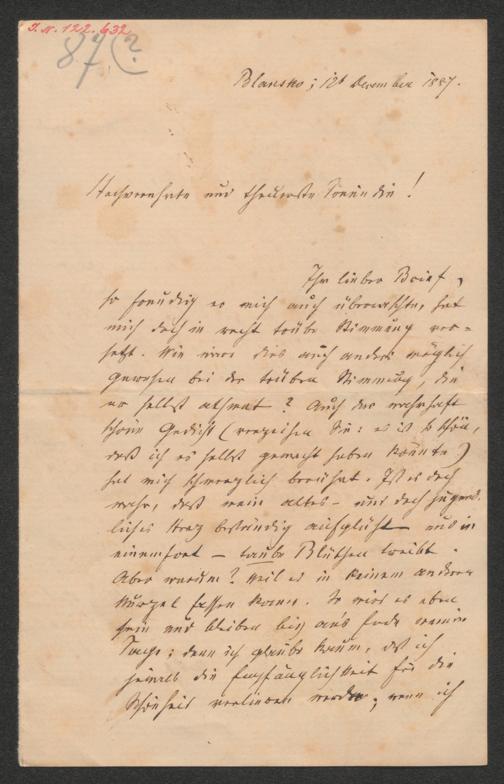 I. N. 122.632
87(?
Blansko; 12t December 1887.
Hochverehrte und theuerste Freundin!
Ihr lieber Brief,
so freudig er mich auch überraschte, hat
mich doch in recht trübe Stimmung ver-
setzt. Wie wäre dies auch anders möglich
gewesen bei der trüben Stimmung, die
er selbst athmet? Auch das wahrhaft
schöne Gedicht (verzeihen Sie: es ist so schön,
daß ich es selbst gemacht haben könnte)
hat mich schmerzlich berührt. Ist es doch
wahr, daß mein altes – und doch jugend-
liches Herz beständig aufglüht und in
einemfort – taube Blüthen treibt.
Aber warum? Weil es in keinem anderen
Wurzel fassen kann. So wird es eben
sein und bleiben bis an's Ende meiner
Tage; denn ich glaube kaum, daß ich
jemals die Empfänglichkeit für die
Schönheit verlieren werde; wenn ich